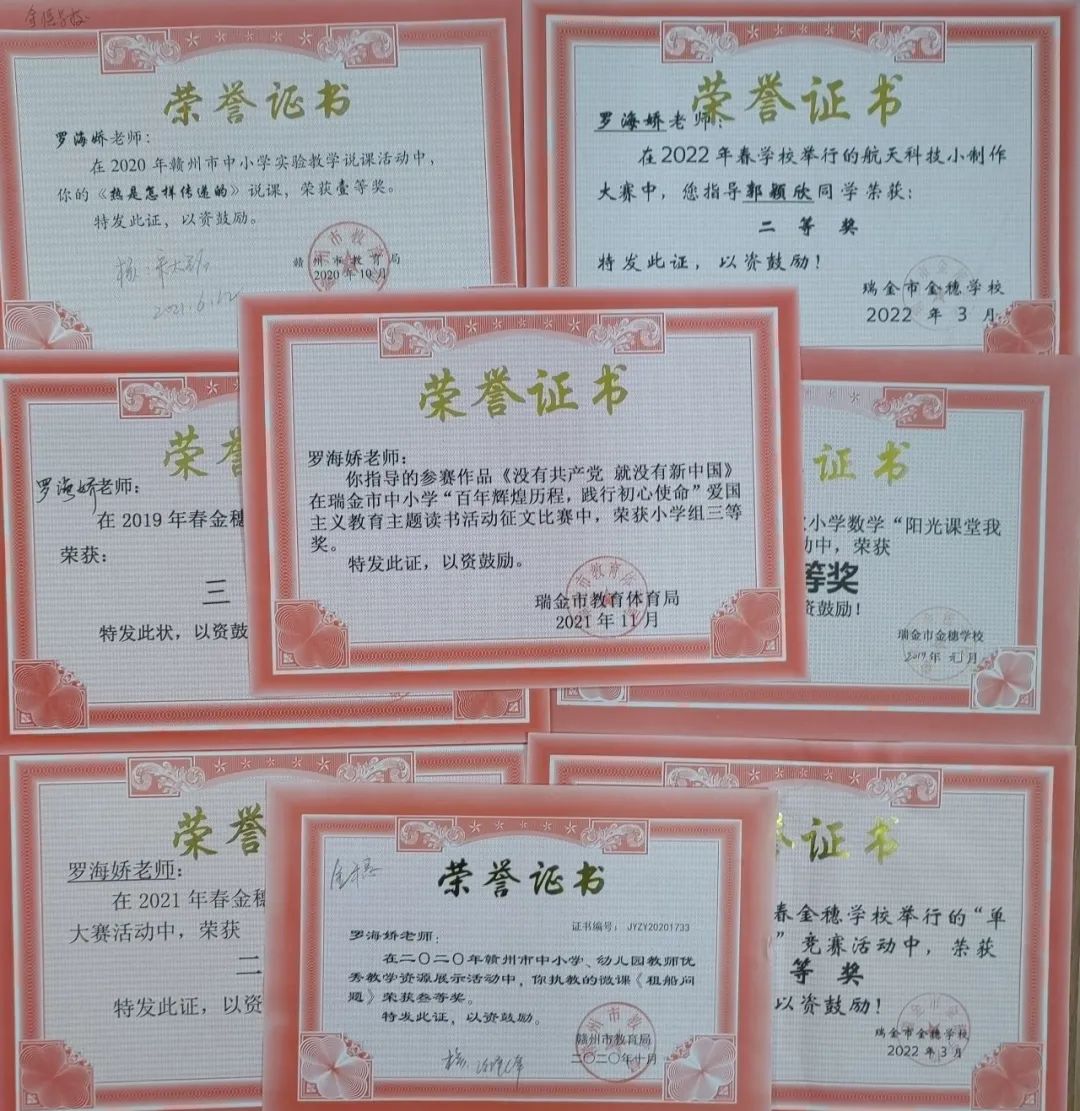 荣誉证书
罗海娇老师:
在2020年赣州市中小学实验教学说课活动中,
你的《热是怎样传递的》说课,荣获壹等奖。
特发此证,以资鼓励。
赣州市教育局
2020年10月
2021.6.12
荣誉证书
罗海娇老师:
在2022年春学校举行的航天科技小制作
大赛中,您指导郭颖欣同学荣获:
二等奖
特发此证,以资鼓励!
瑞金市金穗学校
2022年3月
荣誉证书
罗海娇老师:
你指导的参赛作品《没有共产党 就没有新中国》
在瑞金市中小学“百年辉煌历程,践行初心使命”爱国
主义教育主题读书活动征文比赛中,荣获小学组三等
奖。
特发此证,以资鼓励。
瑞金市教育体育局
2021年11月
荣誉
罗海娇老师:
在2019年春金穗
荣获:
三
特发此状,以资鼓
证书
小学数学“阳光课堂我
动中,荣获
等奖
资鼓励!
瑞金市金穗学校
2019年元月
荣誉
罗海娇老师:
在2021年春金穗
大赛活动中,荣获
二
特发此证,以资
荣誉证书
证书编号: JYZY20201733
罗海娇老师:
在二〇二〇年赣州市中小学、幼儿园教师优
秀教学资源展示活动中,你执教的微课《租船问
题》荣获叁等奖。
特发此证,以资鼓励。
赣州市教育局
二〇二〇年十月
证书
春金穗学校举行的“单
”竞赛活动中,荣获
等奖
以资鼓励!
瑞金市金穗学校
2022年3月